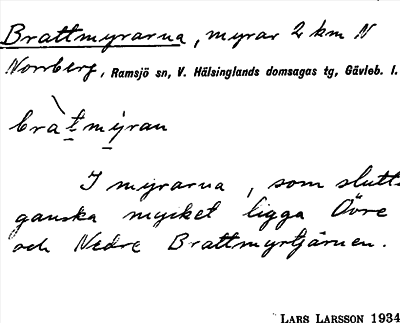 Brattmyrarna, myrar 2 km N
Norrberg, Ramsjö sn, V. Hälsinglands domsagas tg, Gävleb. l.
bràtmýran
I myrarna, som slutta
ganska mycket ligga Övre
och Nedre Brattmyrtjärnen.
LARS LARSSON 1934